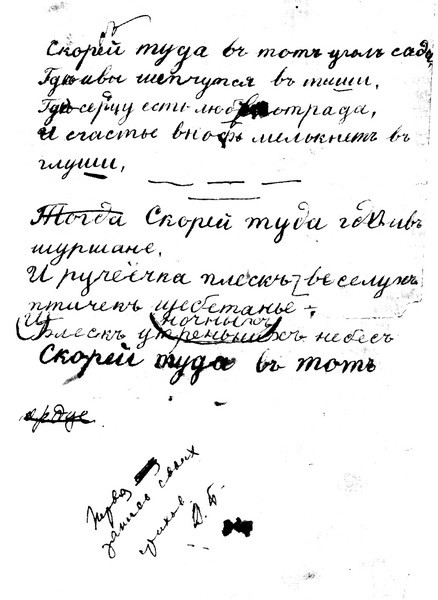 Скорей туда въ тотъ уголъ сада
Где ивы шепчутся въ тиши,
Где сердцу есть любви отрада,
И счастье вновь мелькнетъ въ
глуши,
Тогда Скорей туда где ивъ
шуршане,
И ручеечка плескъ, веселыхъ
птичекъ щебетанье
И ночныхъ
блескъ утреньихъ небесъ
Скорей туда въ тотъ
Перва
запись своихъ
стихов.